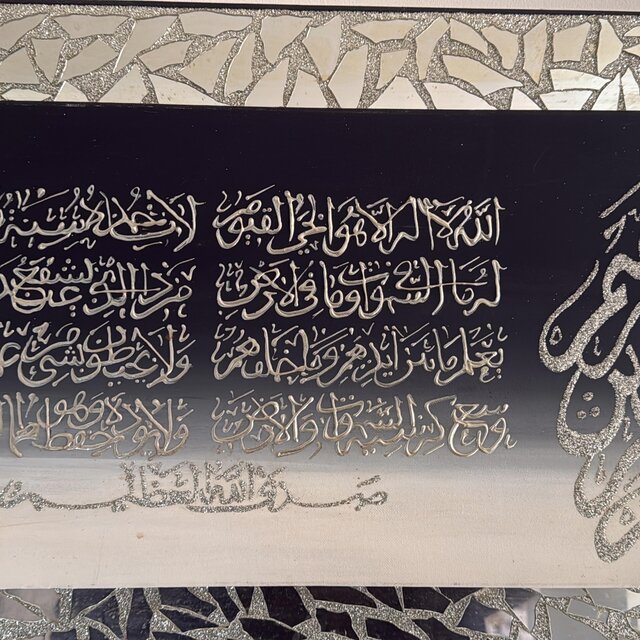 الله لا إله إلا هو الحي القيوم لا تأخذه سنة
له ما في السموات وما في الأرض من ذا الذي يشفع عنده
يعلم ما بين أيديهم وما خلفهم ولا يحيطون بشيء من
وسع كرسيه السموات والأرض ولا يؤده حفظهما وهو
صدق الله العظيم